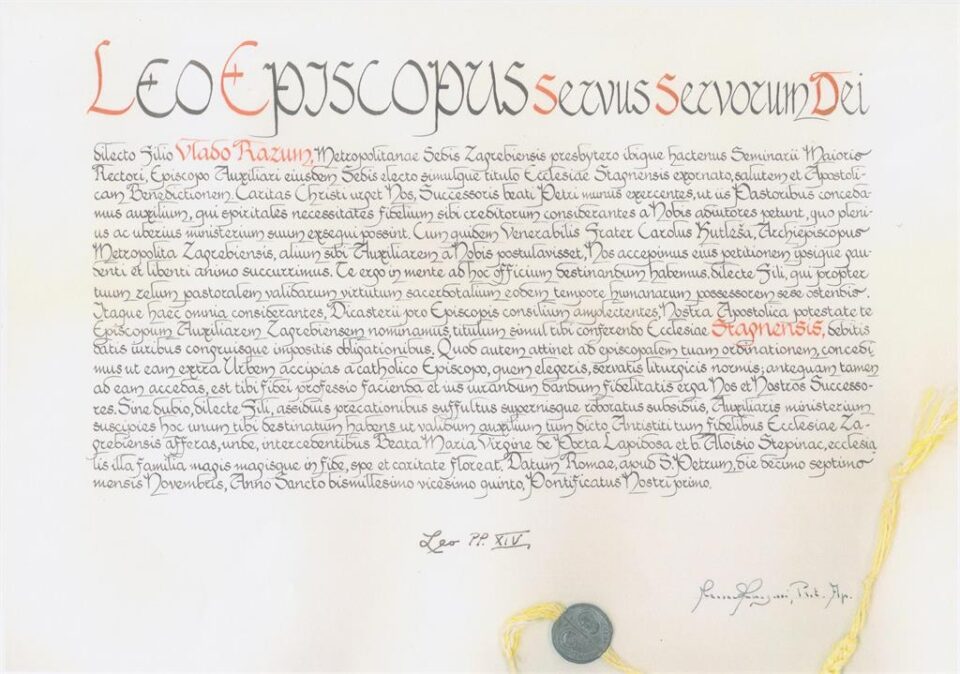 Leo Episcopus Servus Servorum Dei
dilecto Filio Vlado Razum, Metropolitanae Sedis Zagrebiensis presbytero ibique hactenus Seminarii Maioris
Rectori, Episcopo Auxiliari eiusdem Sedis electo simulque titulo Ecclesiae Stagnensis exornato, salutem et Apostoli-
cam Benedictionem. Caritas Christi urget Nos, Successoris beati Petri munus exercentes, ut iis Pastoribus conceda-
mus auxilium, qui spiritales necessitates fidelium sibi creditorum considerantes a Nobis adiutores petunt, quo pleni-
us ac uberius ministerium suum exsequi possint. Cum quidem Venerabilis Frater Carolus Kutleša, Archiepiscopus
Metropolita Zagrebiensis, alium sibi Auxiliarem a Nobis postulavisset, Nos accepimus eius petitionem ipsique gau-
denti et libenti animo succurrimus. Te ergo in mente ad hoc officium destinandum habemus, dilecte Fili, qui propter
tuum zelum pastoralem validarum virtutum sacerdotalium eodem tempore humanarum possessorem sese ostendis.
Itaque haec omnia considerantes, Dicasterii pro Episcopis consilium amplectentes, Nostra Apostolica potestate te
Episcopum Auxiliarem Zagrebiensem nominamus, titulum simul tibi conferendo Ecclesiae Stagnensis, debitis
datis iuribus congruisque impositis obligationibus. Quod autem attinet ad episcopalem tuam ordinationem, concedi
mus ut eam extra Urbem accipias a catholico Episcopo, quem elegeris, servatis liturgicis normis; antequam tamen
ad eam accedas, est tibi fidei professio facienda et ius iurandum dandum fidelitatis erga Nos et Nostros Successo-
res. Sine dubio, dilecte Fili, assiduis precationibus suffultus supernisque roboratus subsidiis, Auxiliaris ministerium
suscipies hoc unum tibi destinatum habens ut validum auxilium tum dicto Antistiti tum fidelibus Ecclesiae Za-
grebiensis afferas, unde, intercedentibus Beata Maria Virgine de Porta Lapidosa et b. Aloisio Stepinac, ecclesia
lis illa familia magis magisque in fide, spe et caritate floreat. Datum Romae, apud S. Petrum, die decimo septimo
mensis Novembris, Anno Sancto bismillesimo vicesimo quinto, Pontificatus Nostri primo.
Leo PP. XIV
Prot. Ap.